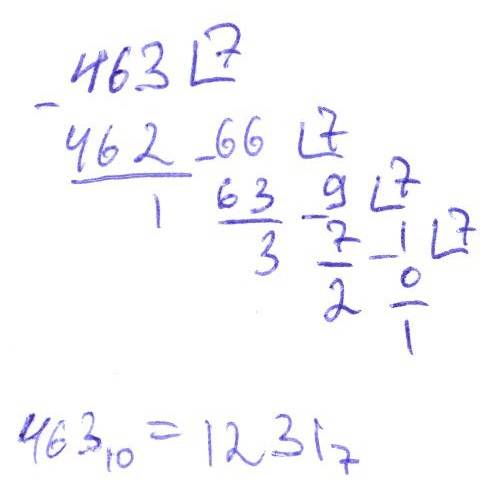 - 463 7
462 - 66 7
1 63 - 9 7
3 7 - 1 7
2 0
1
463₁₀ = 1231₇